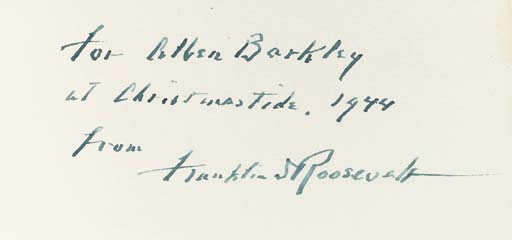 For Alben Barkley
at Christmastide, 1944
from
Franklin D Roosevelt